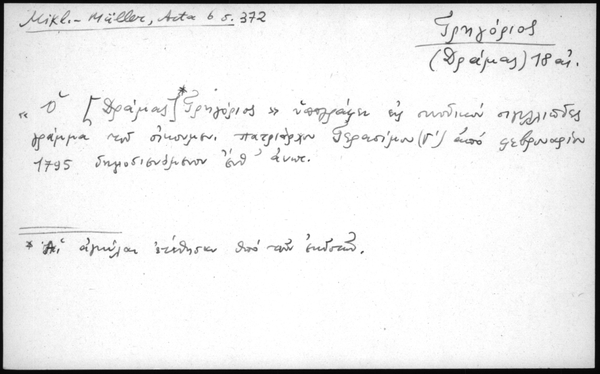 Mikl.-Müller, Acta 6 σ. 372
Γρηγόριος
(Δράμας) 18 αἰ.
« Ὁ [Δράμας]* Γρηγόριος » ὑπογράφει εἰς συνοδικὸν σιγιλλιῶδες
γράμμα τοῦ οἰκουμεν. πατριάρχου Γερασίμου (Γ') ἀπὸ φεβρουαρίου
1795 δημοσιευόμενον ἔνθ' ἀνωτ.
* Αἱ ἀγκύλαι ἐτέθησαν ὑπὸ τῶν ἐκδοτῶν.